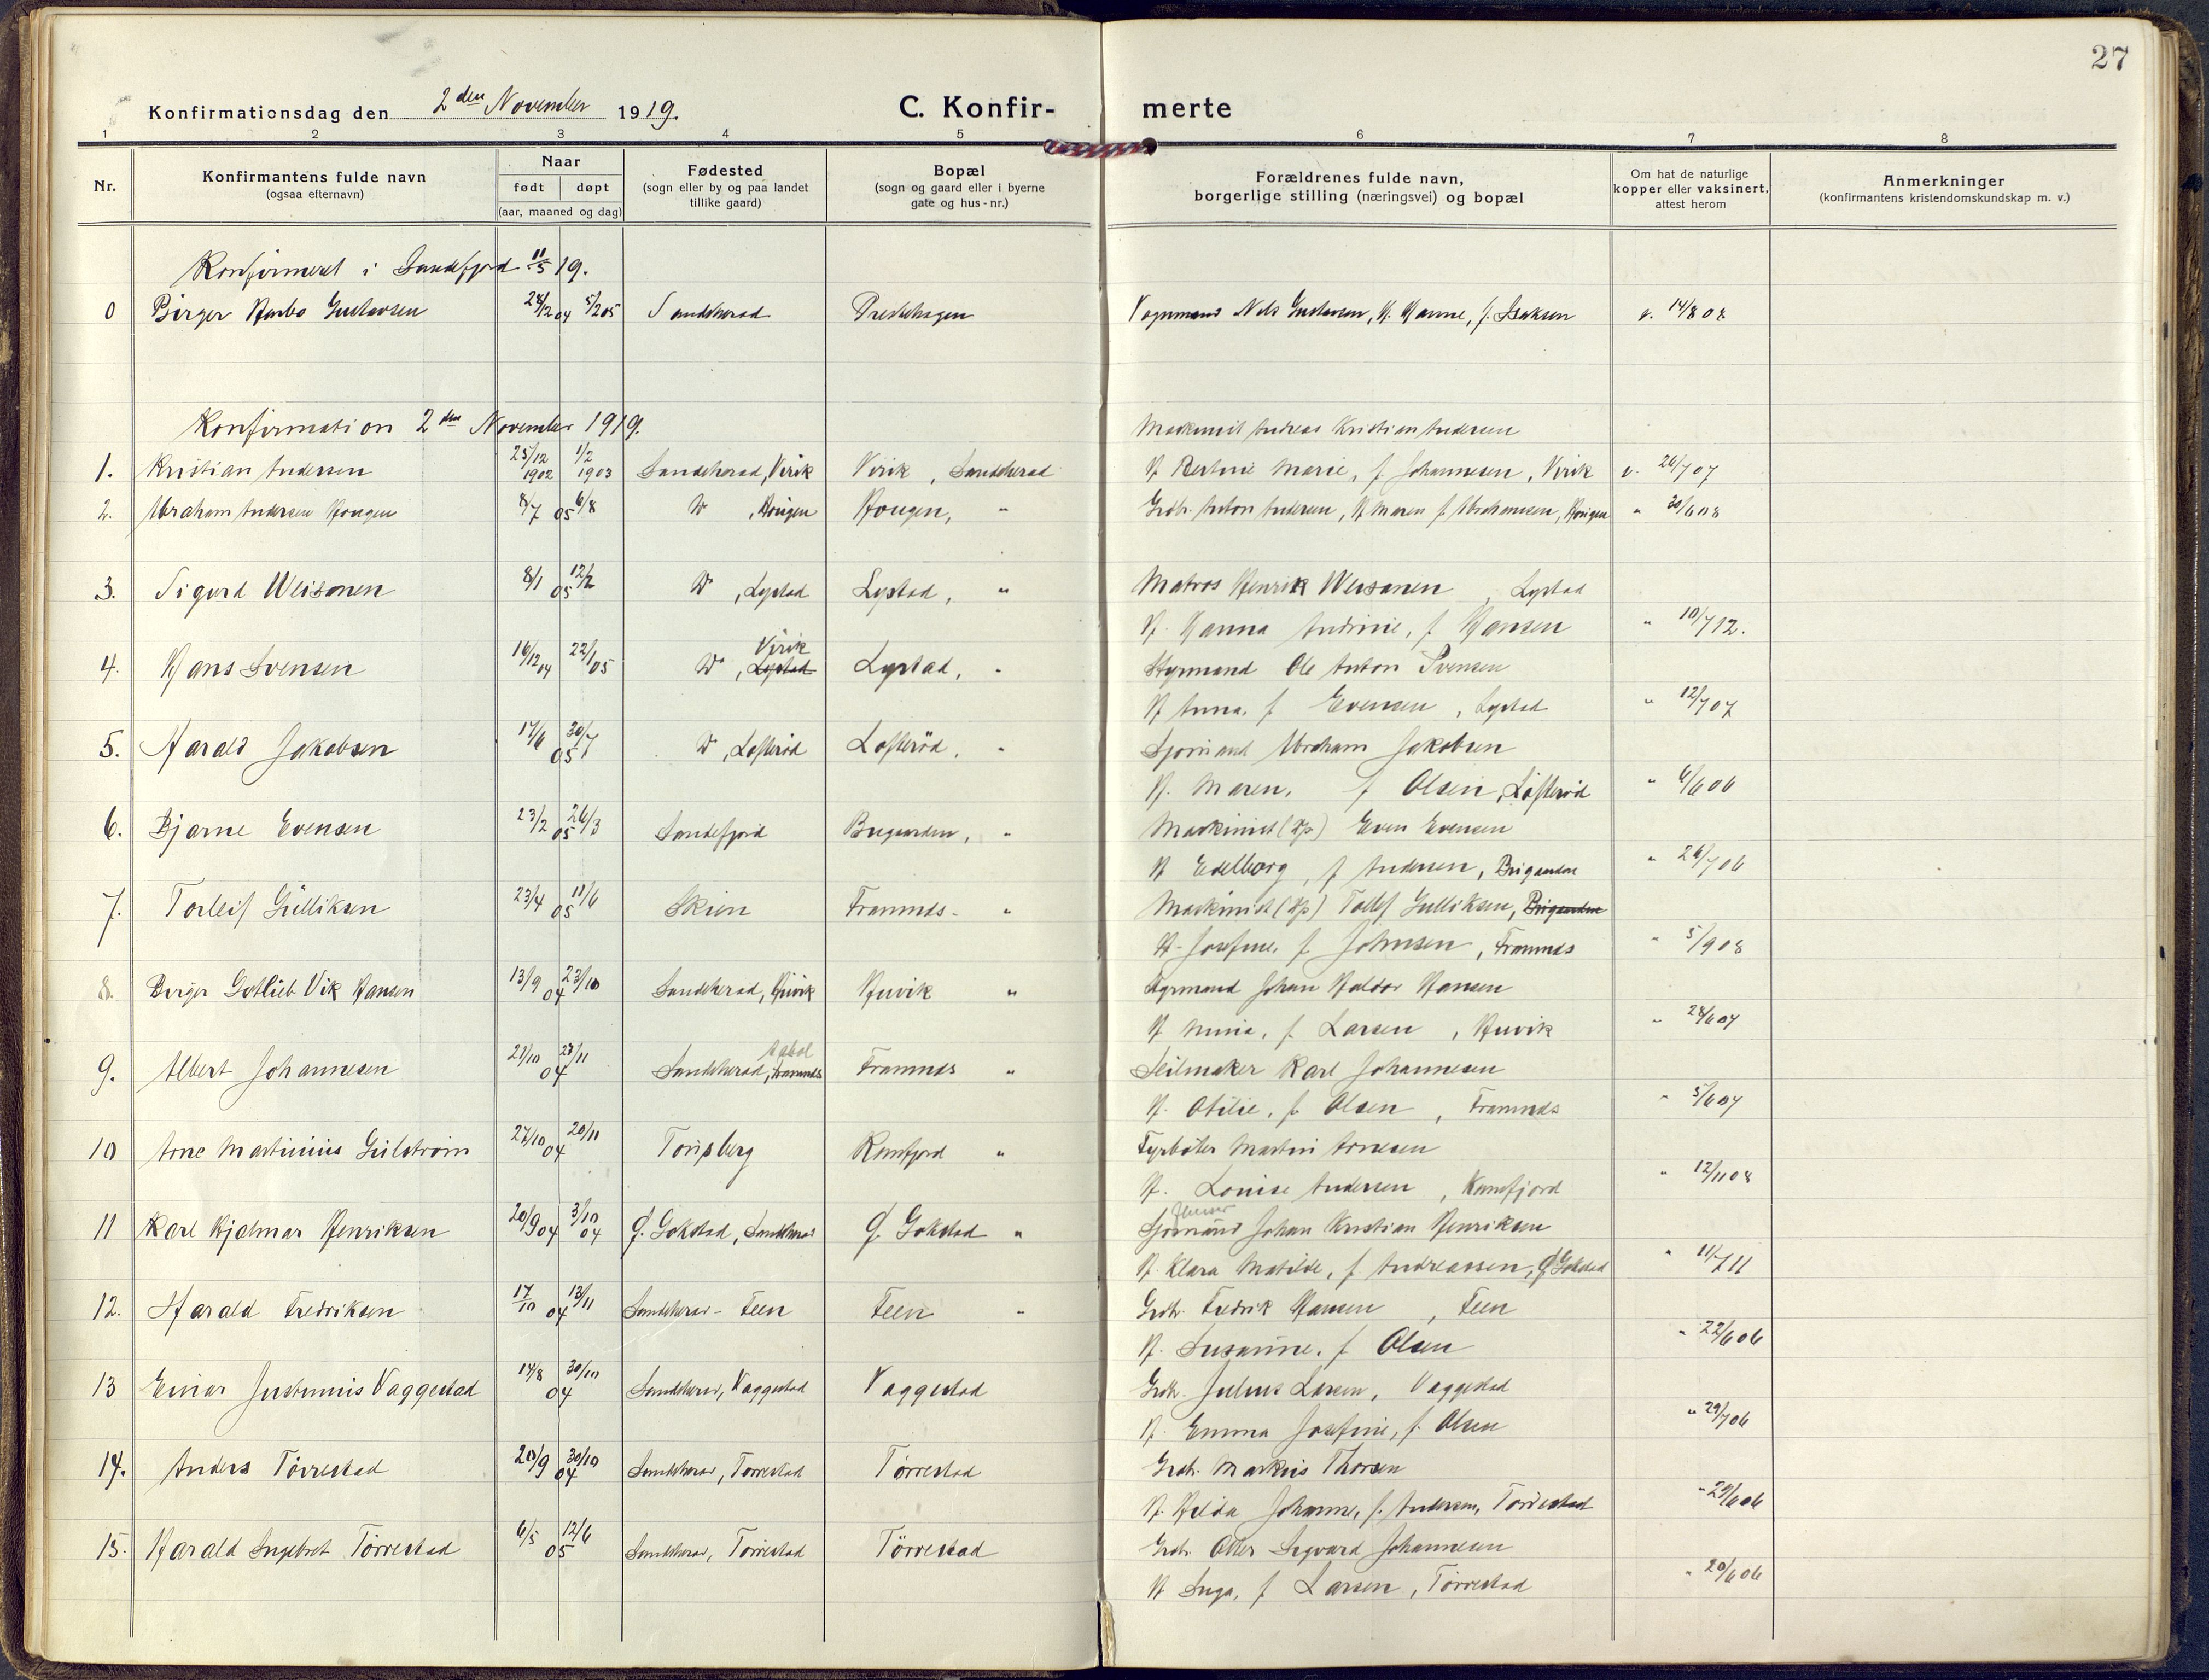 27
Konfirmationsdag den 2den November 1919.
C. Konfir- merte
1 2 3 4 5 6 7 8
Nr.
Konfirmantens fulde navn
(ogsaa efternavn)
Naar
født døpt
(aar, maaned og dag)
Fødested
(sogn eller by og paa landet
tillike gaard)
Bopæl
(sogn og gaard eller i byerne
gate og hus-nr.)
Forældrenes fulde navn,
borgerlige stilling (næringsvei) og bopæl
Om hat de naturlige
kopper eller vaksinert,
attest herom
Anmerkninger
(konfirmantens kristendomskundskap m. v.)
Konfirmeret i Sandefjord 11/5 19.
0 Birger Gustavsen 28/12 04 5/2 05 Sandeherad Prestehagen Nils Gustavsen, H. Hanne, f. Isaksen v. 14/8 08
Konfirmation 2den November 1919.
Maskinist Andreas Kristian Andersen
1. Kristian Andersen 25/12 1902 1/2 1903 Sandeherad, Virik Virik, Sandeherad H Bertine Marie, f. Johannesen, Virik v. 26/7 07
2. Abraham Andersen Hougen 8/7 05 6/8 Do, Hougen Hougen, " Grdbr. Anton Andersen, H Maren f. Abrahamsen, Hougen " 30/6 08
3. Sigurd Weisonen 8/1 05 12/2 Do, Lystad Lystad, " Matros Henrik Weisonen, Lystad
H. Hanna Andrine, f Hansen " 10/7 12.
4. Hans Svensen 16/12 04 22/1 05 Do, Lystad Virik Lystad, " Styrmand Ole Anton Svensen
H Anna, f Evensen, Lystad " 12/7 07
5. Harald Jakobsen 17/6 05 30/7 Do, Lofterød Lofterød, " Sjømand Abraham Jakobsen
H. Maren, f Olsen, Löfterød " 6/6 06
6. Bjarne Evensen 23/2 05 26/3 Sandefjord Bugaarden, " Maskinist Even Evensen
H Edelborg, f Andersen, " 26/7 06
7. Torleif Gulliksen 23/4 05 11/6 Skien Framnæs - " Maskinist Gulliksen,
H. Josefine, f. Johnsen, Framnæs " 5/9 08
8. Birger Gotlieb Vik Hansen 13/9 04 23/10 Sandeherad, Huvik Huvik " Styrmand Johan Haldor Hansen
H Mina, f. Larsen, Huvik " 28/6 07
9. Albert Johannesen 21/10 04 27/11 Sandeherad, Framnæs Framnæs " Seilmaker Karl Johannesen
H. Otilie, f. Olsen, Framnæs " 5/6 07
10 Arne Martinius Gulstrøm 27/10 04 20/11 Tønsberg Kamfjord " Fyrbøter Martin Arnesen
H. Louise Andersen, Kamfjord " 12/11 08
11 Karl Hjalmar Henriksen 20/9 04 3/10 04 Ø. Gokstad, Sandeherad Ø. Gokstad " Sjømand Johan Kristian Henriksen
H. Klara Matilde, f Andreassen, Ø Gokstad " 11/7 11
12. Harald Fredriksen 17/10 04 13/11 Sandeherad - Feen Feen " Grdbr. Fredrik Hansen, Feen
H. Susanne, f Olsen " 22/6 06
13 Einar Justinius Vaggestad 14/8 04 30/10 Sandeherad, Vaggestad Vaggestad Grdbr. Julius Larsen, Vaggestad
H. Emma Josefine, f. Olsen " 29/7 06
14. Anders Tørrestad 20/9 04 30/10 Sandeherad, Tørrestad Tørrestad Grdbr. Markus Thorsen
H. Hilda Johanne, f. Andersen, Tørrestad " 29/6 06
15. Harald Ingebret Tørrestad 6/5 05 12/6 Sandeherad, Tørrestad Törrestad Grdbr. Otter Sigvard Johannesen
H Inga, f Larsen, Tørrestad " 20/6 06